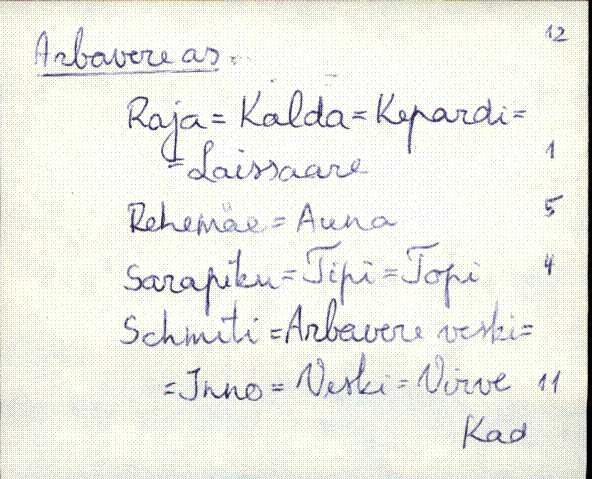 12
Arbavere as.
Raja = Kalda = Kepardi =
= Laissaare 1
Rehemäe = Auna 5
Sarapiku = Tipi = Topi 4
Schmiti = Arbavere veski =
= Inno = Veski = Virve 11
Kad